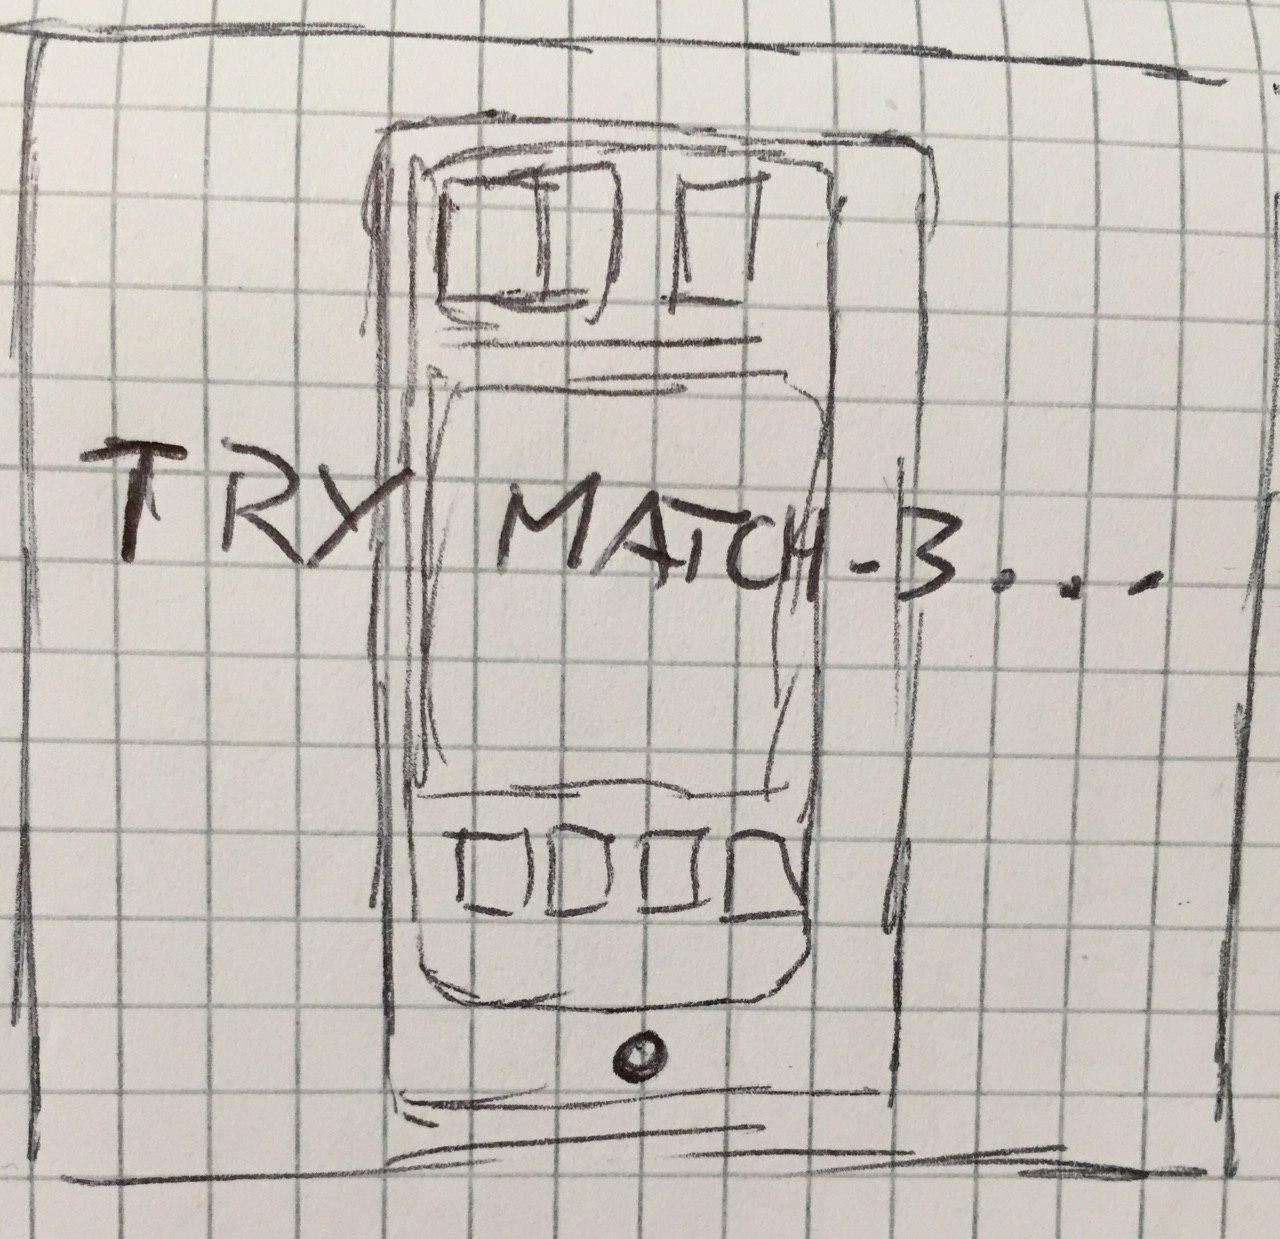 TRY MATCH-3...